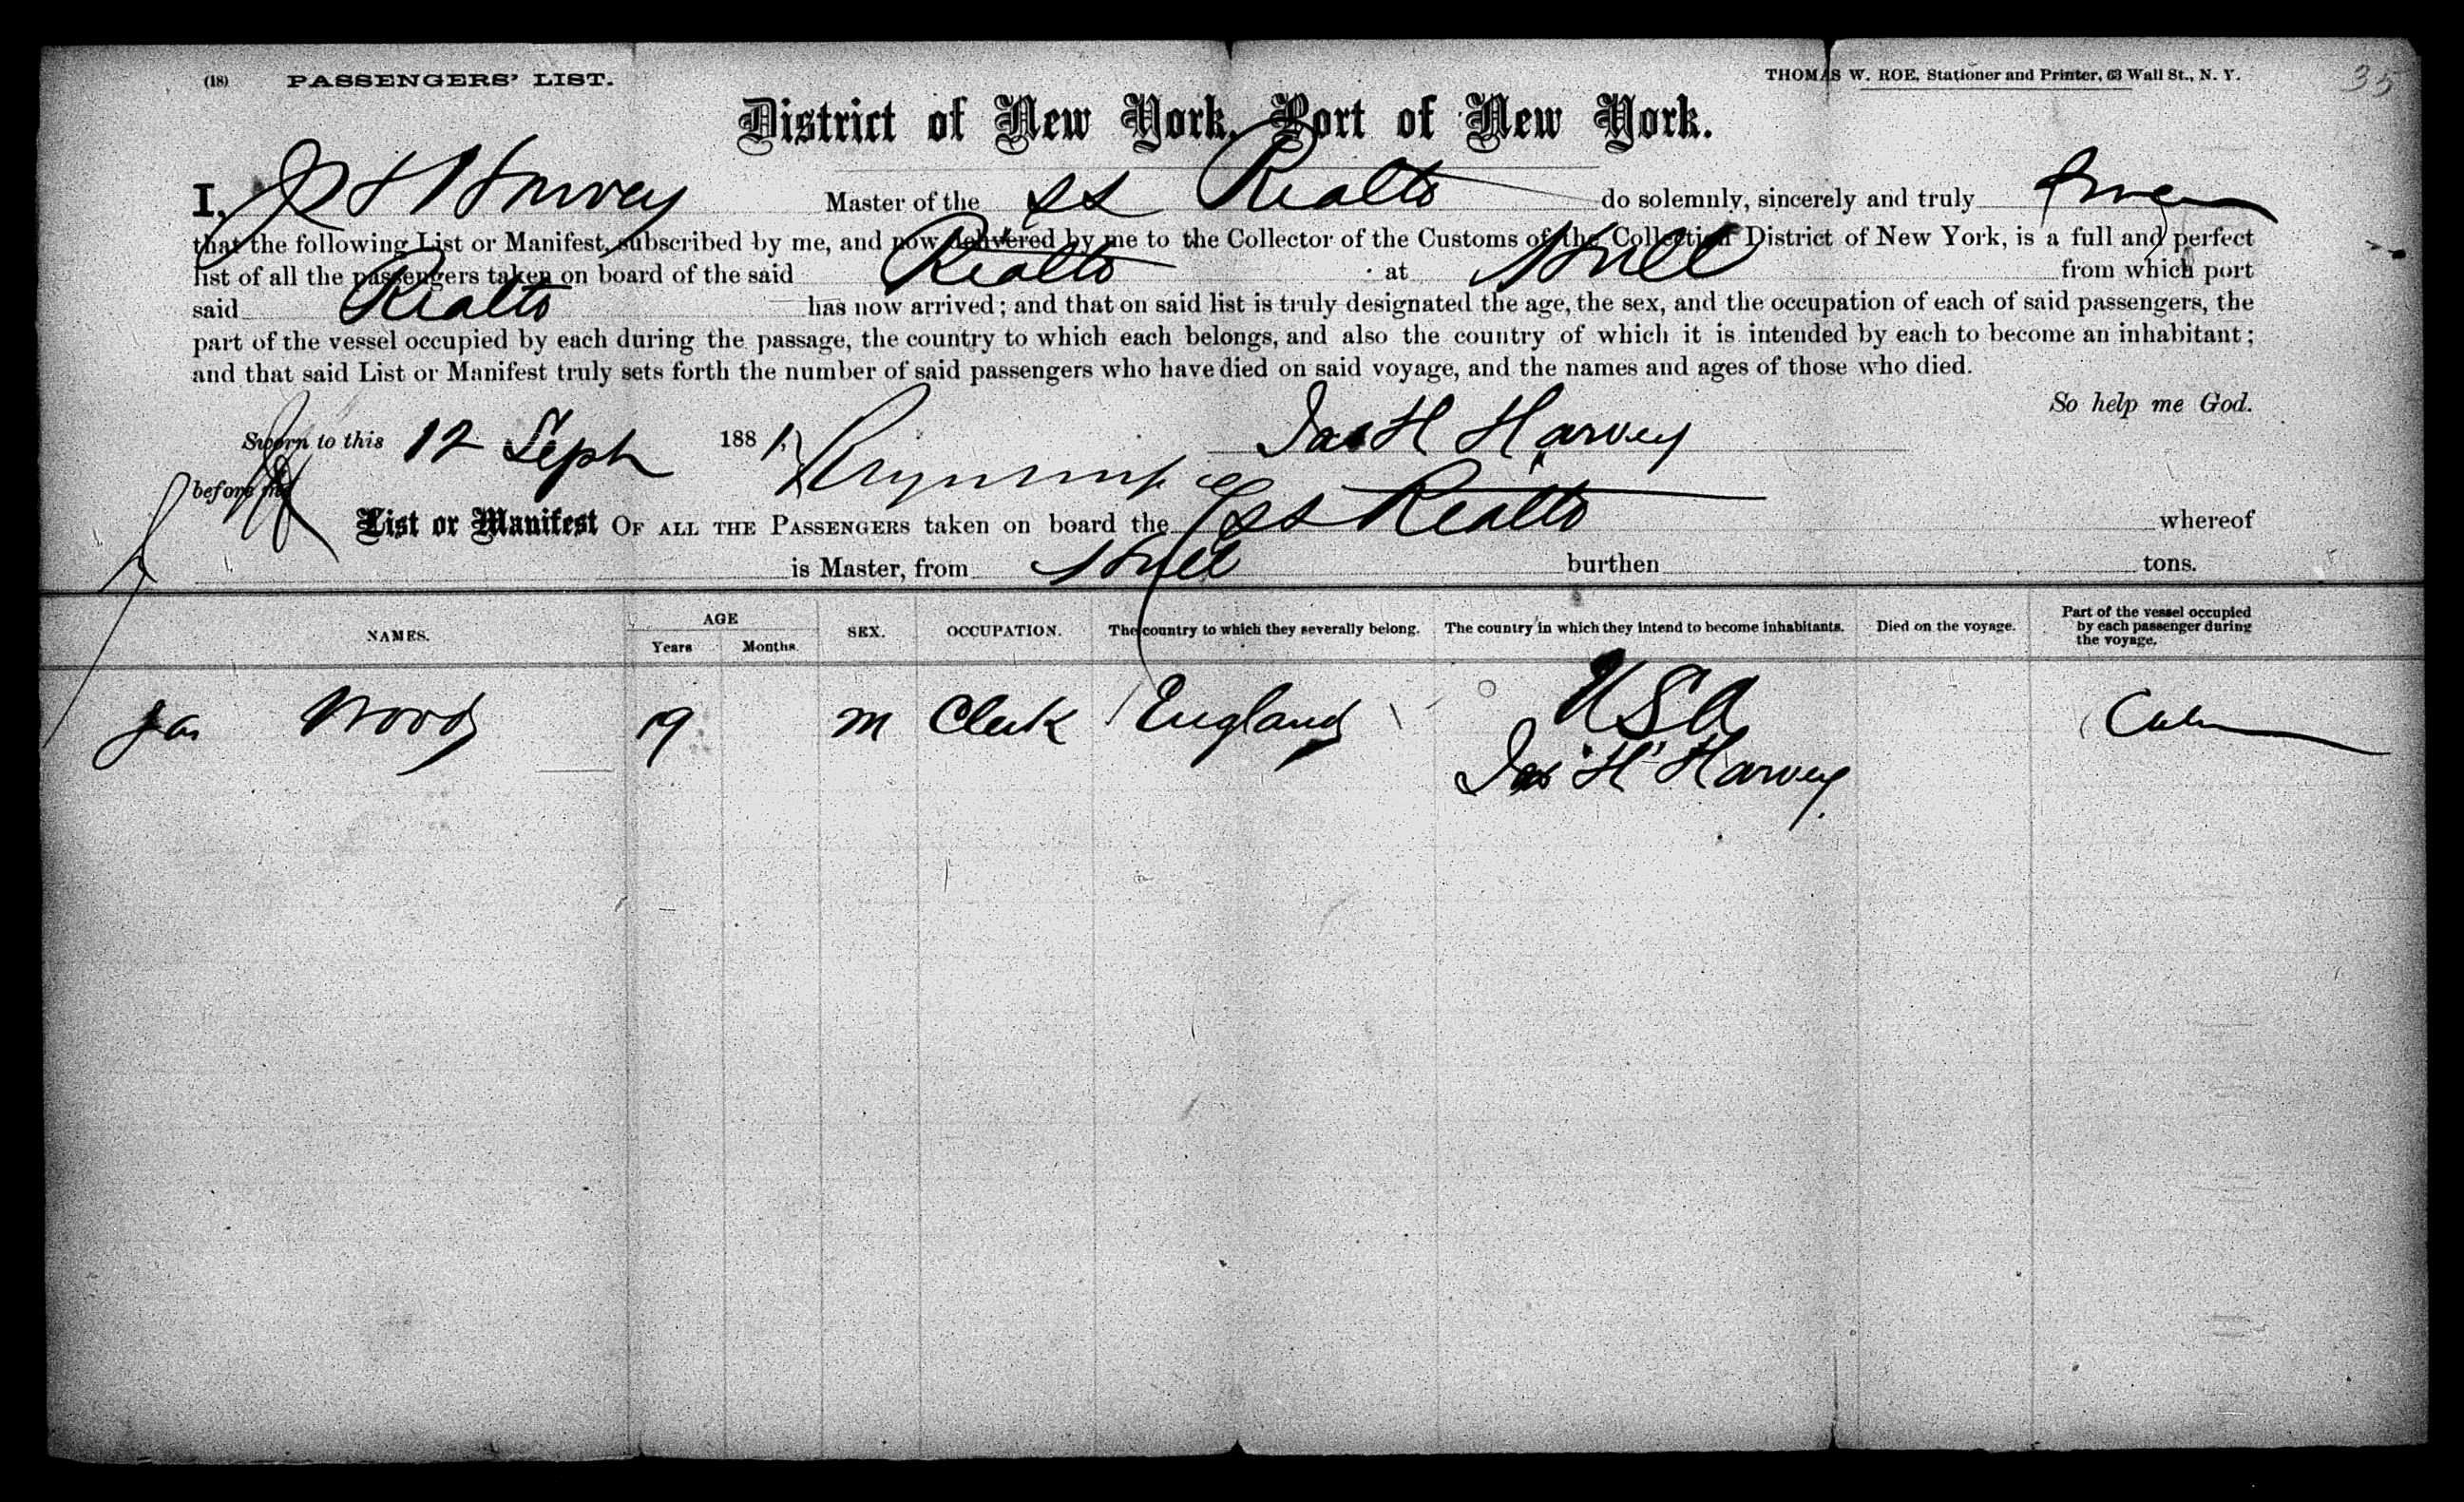 (18) PASSENGERS' LIST.
THOMAS W. ROE, Stationer and Printer, 63 Wall St., N. Y.
35
District of New York, Port of New York.
I, J H Harvey Master of the SS Rialto do solemnly, sincerely and truly swear
that the following List or Manifest, subscribed by me, and now delivered by me to the Collector of the Customs of the Collection District of New York, is a full and perfect
list of all the passengers taken on board of the said Rialto at Hull from which port
said Rialto has now arrived; and that on said list is truly designated the age, the sex, and the occupation of each of said passengers, the
part of the vessel occupied by each during the passage, the country to which each belongs, and also the country of which it is intended by each to become an inhabitant;
and that said List or Manifest truly sets forth the number of said passengers who have died on said voyage, and the names and ages of those who died.
So help me God.
Sworn to this 12 Sept 1881 Jas H Harvey
before me
List or Manifest OF ALL THE PASSENGERS taken on board the SS Rialto whereof
is Master, from Hull burthen tons.
NAMES. AGE Years Months. SEX. OCCUPATION. The country to which they severally belong. The country in which they intend to become inhabitants. Died on the voyage. Part of the vessel occupied by each passenger during the voyage.
Jas Wood 19 M Clerk England USA
Jas H Harvey